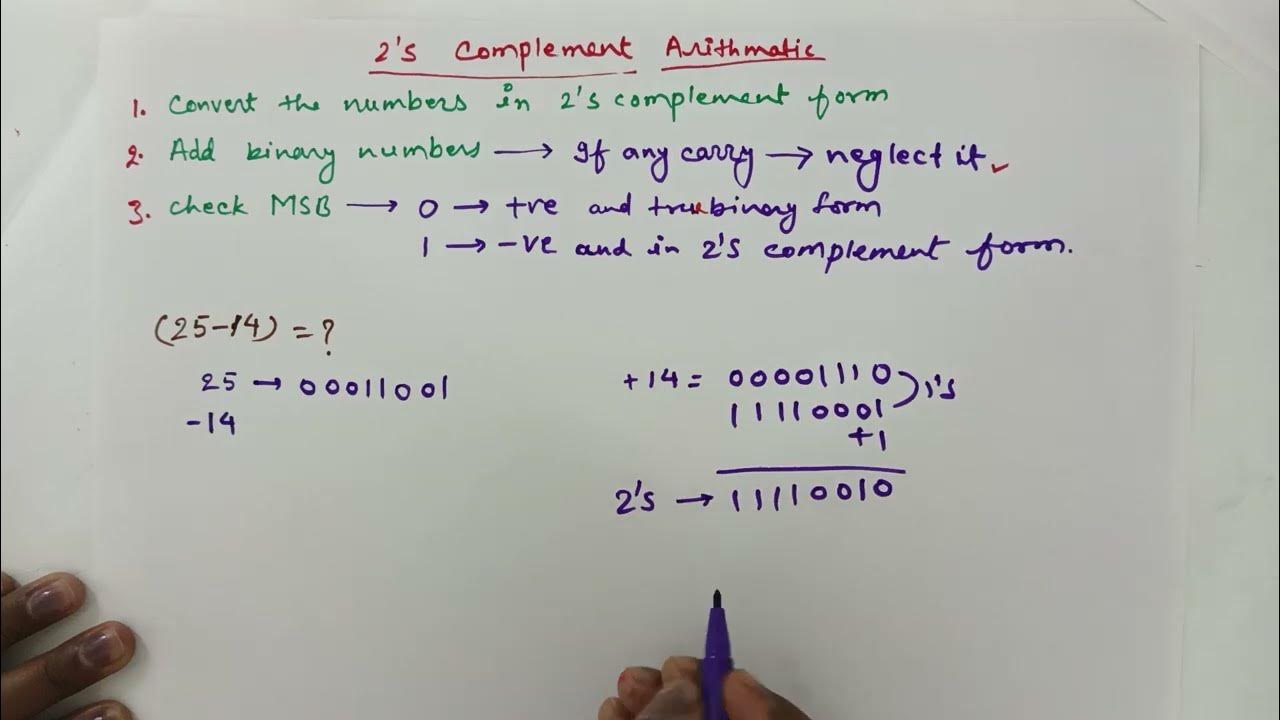 2's Complement Arithmatic
1. Convert the numbers in 2's complement form
2. Add binary numbers → If any carry → neglect it ✓
3. Check MSB → 0 → +ve and true binary form
1 → -ve and in 2's complement form.
(25-14) = ?
25 → 00011001
-14
+14 = 00001110
11110001 1's
+1
2's → 11110010